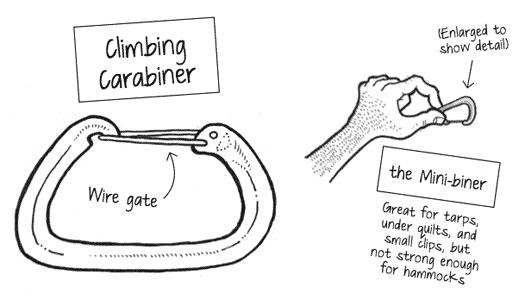 Climbing
Carabiner
Wire gate
(Enlarged to
show detail)
the Mini-biner
Great for tarps,
under quilts, and
small clips, but
not strong enough
for hammocks